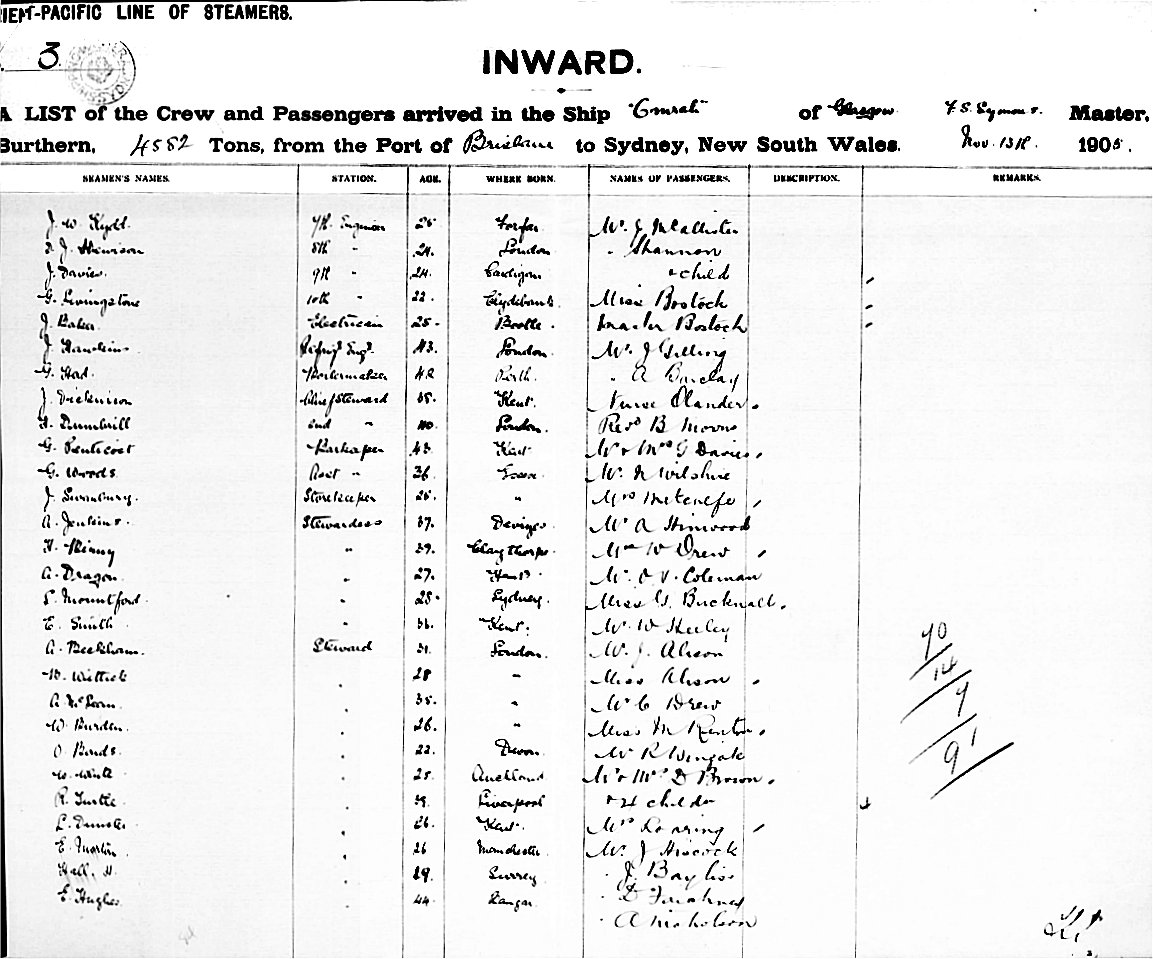 IENT-PACIFIC LINE OF STEAMERS.
3
INWARD.
A LIST of the Crew and Passengers arrived in the Ship "Omrah" of Glasgow F. S. Symons. Master,
Burthern, 4582 Tons, from the Port of Brisbane to Sydney, New South Wales. Nov. 13th. 1905.
SEAMEN'S NAMES. STATION. AGE. WHERE BORN. NAMES OF PASSENGERS. DESCRIPTION. REMARKS.
J. W. Kydd. 7th. Engineer 25 Forfar Mr. J McAllister
J. 8th " 24. London " Shannon
J. Davies. 9th " 24. Cardigan & child
G. Livingstone 10th " 22. Clydebank Miss Bostock
J. Baker Electrician 25. Bootle. Master Bostock
J. Hawkins Refrig. Engr. 43. London Mr. J Gilling
G. Hod. Boilermaker 42 Perth. " A Barclay
J. Dickinson Chief Steward 35. Kent. Nurse Olander
Dumbrill 2nd " 40. London. Revd B Moore
G. Penticost Barkeeper 43. Kent Mr & Mrs G Davies
G. Woods Asst " 36 Essex Mr. N Wilshire
J. Storekeeper 26. " Mrs Metcalfe
A. Jenkins. Stewardess 37. Devizes Mr A Hinwood
H. Skinny " 39. Claythorpe W Drew
A. Dragon " 27. Hants. Mr. O. V. Coleman
S. Mountford " 28. Sydney. Miss G. Bucknall
E. Smith " 36. Kent. Mr. W Heeley
A. Beckham. Steward 31. London. Mr. J. Alison
W. Wittick " 28 " Miss Alison
A. McLean. " 35. " Mr C Drew
W. Burden. " 26. " Miss M Renton
O. Bonds. " 22. Devon Mr R Wingate
" 25. Auckland Mr & Mrs D Brown
R. Turtle " 39. Liverpool & 4 childn 4
L. " 26. Kent. Mrs Loaring
E. Martin " 26 Manchester Mr. J Hiscock
Hall. H. " 29. Surrey " J. Bayliss
E. Hughes " 44. Bangor " D
" A Nicholson
70
14
7
91